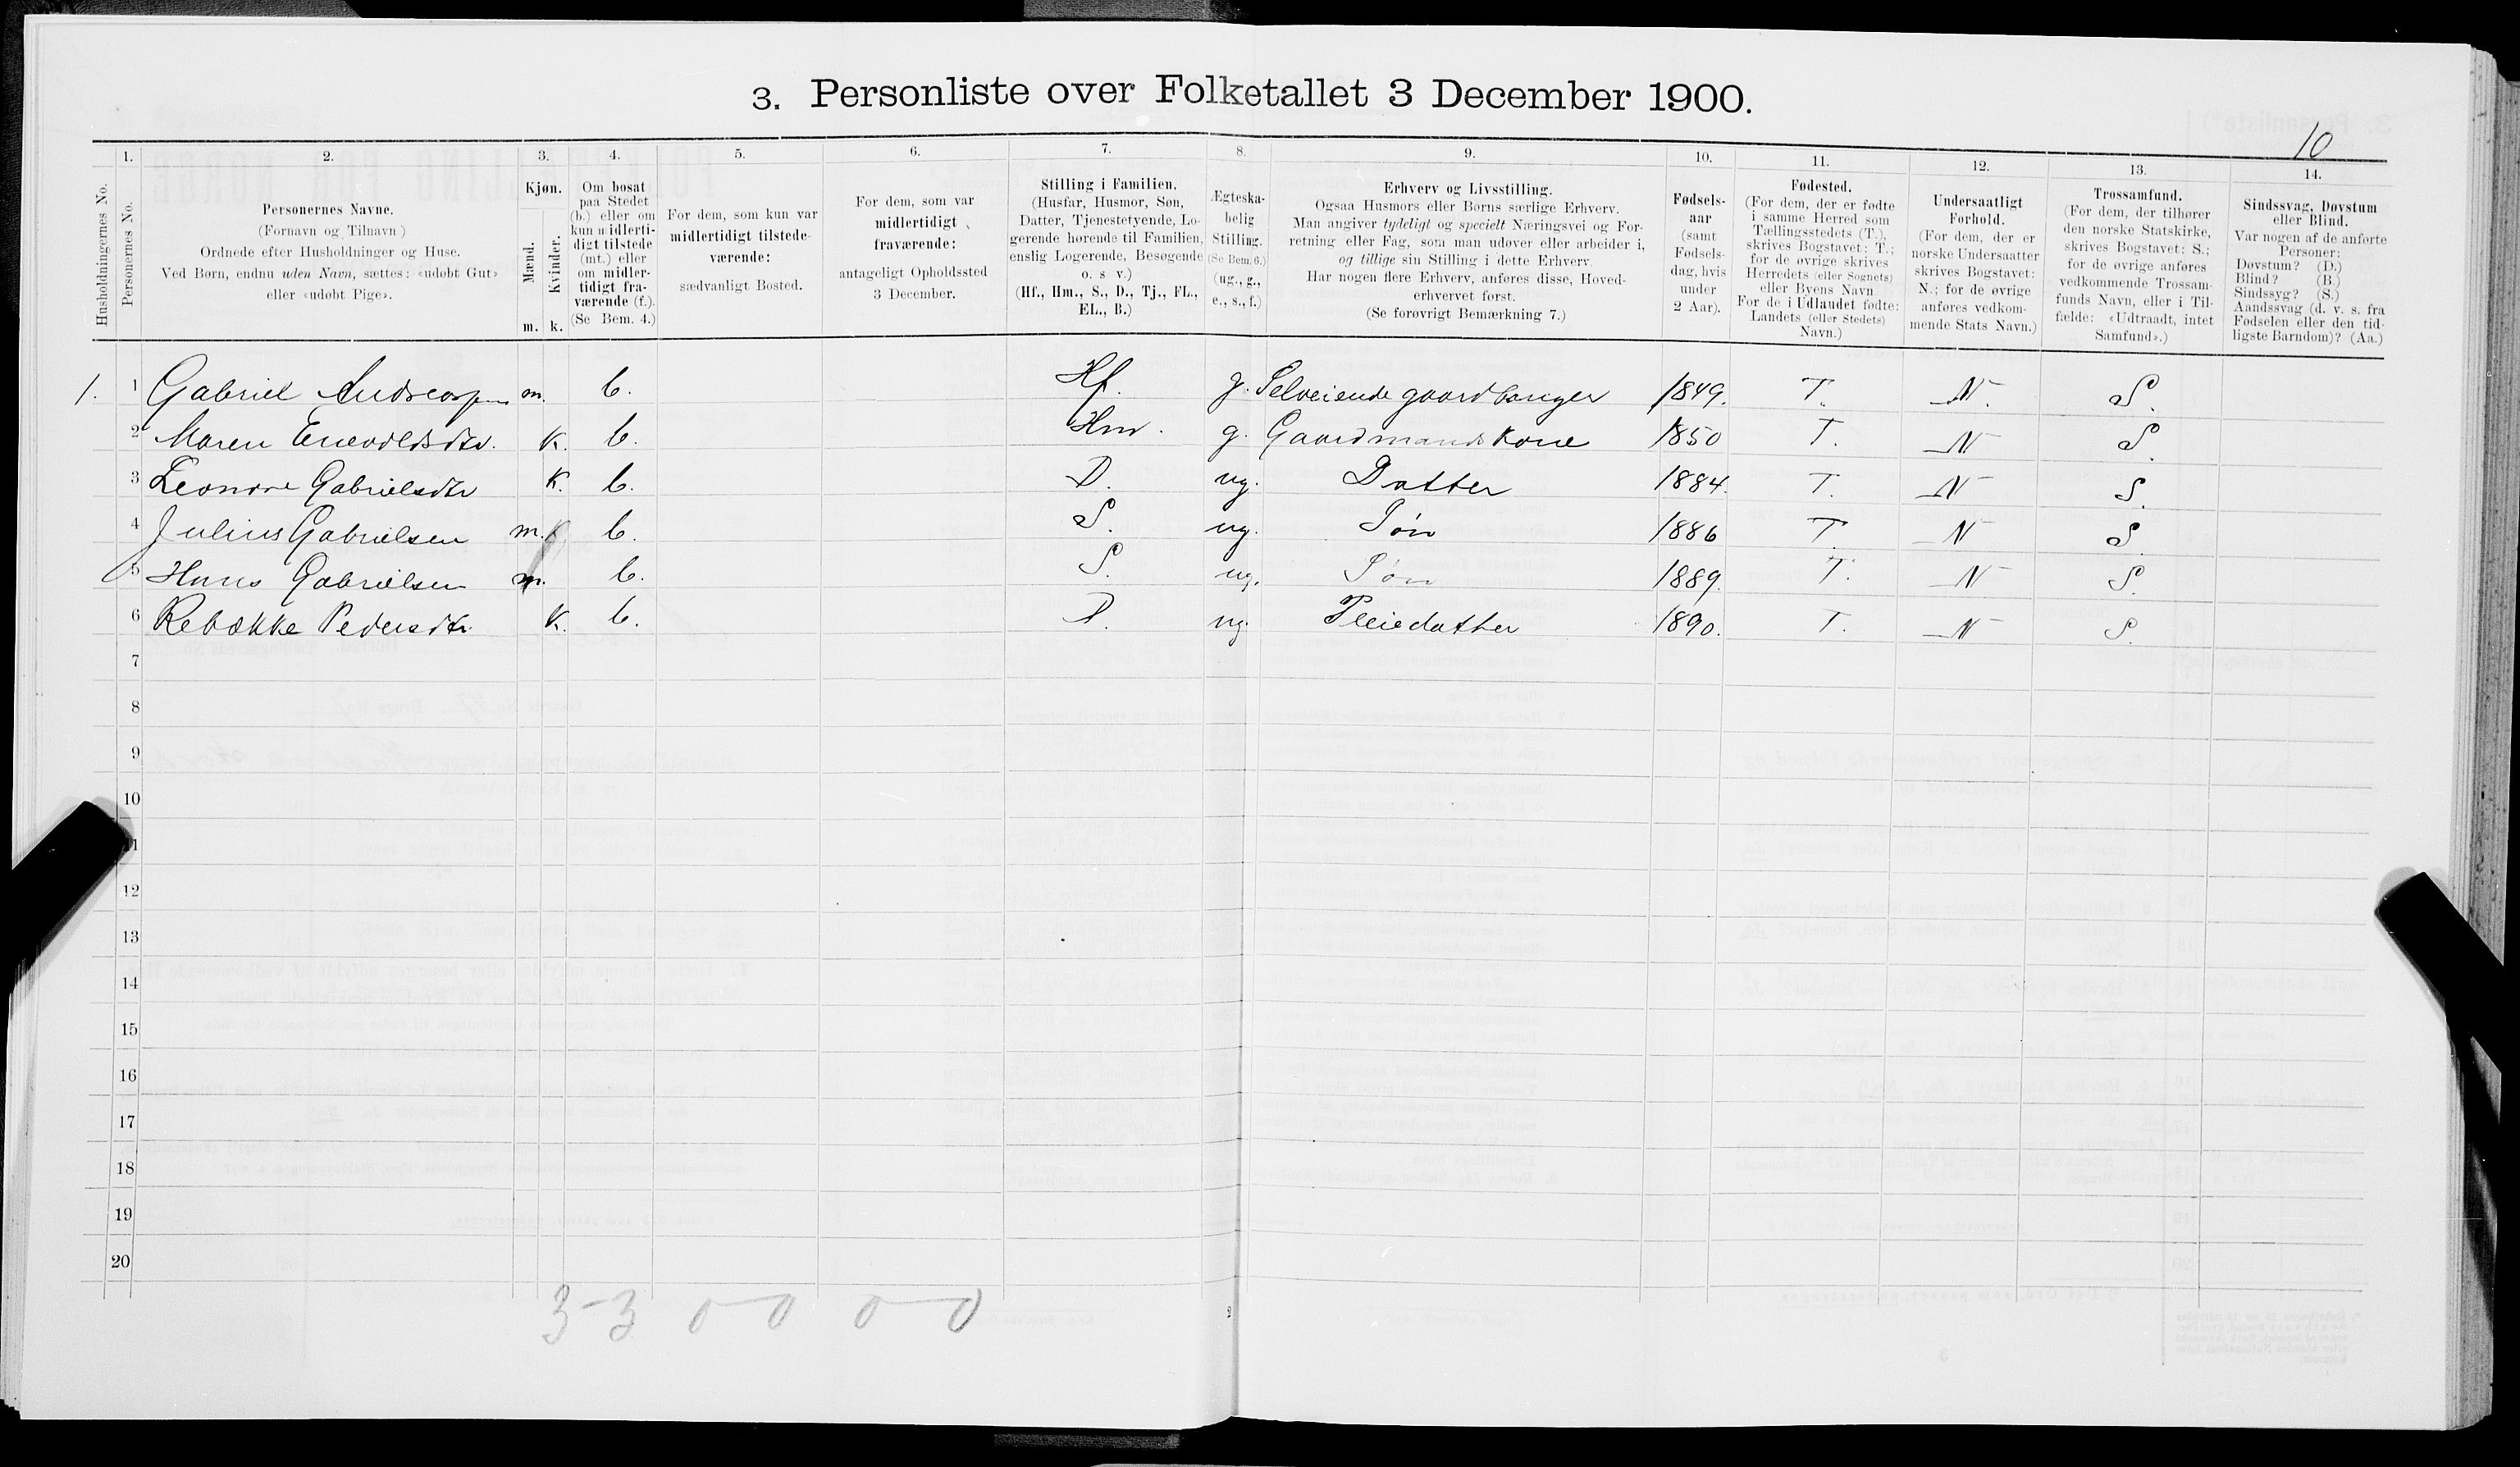 3. Personliste over Folketallet 3 December 1900.
10
1. 2. 3. 4. 5. 6. 7. 8. 9. 10. 11. 12. 13. 14.
Husholdningernes No.
Personernes No.
Personernes Navne.
(Fornavn og Tilnavn)
Ordnede efter Husholdninger og Huse.
Ved Børn, endnu uden Navn, sættes: «udøbt Gut»
eller «udøbt Pige».
Kjøn.
Mænd.
Kvinder.
m. k.
Om bosat
paa Stedet
(b.) eller om
kun midlerti-
digt tilstede
(mt.) eller
om midler-
tidigt fra-
værende (f.).
(Se Bem. 4.)
For dem, som kun var
midlertidigt tilstede-
værende:
sædvanligt Bosted.
For dem, som var
midlertidigt
fraværende:
antageligt Opholdssted
3 December.
Stilling i Familien.
(Husfar, Husmor, Søn,
Datter, Tjenestetyende, Lo-
gerende hørende til Familien,
enslig Logerende, Besøgende
o. s v.)
(Hf., Hm., S., D., Tj., FL.,
EL., B.)
Ægteska-
belig
Stilling.
(Se Bem. 6.)
(ug., g.,
e., s., f.)
Erhverv og Livsstilling.
Ogsaa Husmors eller Børns særlige Erhverv.
Man angiver tydeligt og specielt Næringsvei og For-
retning eller Fag, som man udøver eller arbeider i,
og tillige sin Stilling i dette Erhverv.
Har nogen flere Erhverv, anføres disse, Hoved-
erhvervet først.
(Se forøvrigt Bemærkning 7.)
Fødsels-
aar
(samt
Fødsels-
dag, hvis
under
2 Aar).
Fødested.
(For dem, der er fødte
i samme Herred som
Tællingsstedets (T.),
skrives Bogstavet: T.;
for de øvrige skrives
Herredets (eller Sognets)
eller Byens Navn
For de i Udlandet fødte:
Landets (eller Stedets)
Navn.)
Undersaatligt
Forhold.
(For dem, der er
norske Undersaatter
skrives Bogstavet:
N.; for de øvrige
anføres vedkom-
mende Stats Navn.)
Trossamfund.
(For dem, der tilhører
den norske Statskirke,
skrives Bogstavet: S.;
for de øvrige anføres
vedkommende Trossam-
funds Navn, eller i Til-
fælde: «Udtraadt, intet
Samfund».)
Sindssvag, Døvstum
eller Blind.
Var nogen af de anførte
Personer:
Døvstum? (D.)
Blind? (B.)
Sindssyg? (S.)
Aandssvag (d. v. s. fra
Fødselen eller den tid-
ligste Barndom)? (Aa.)
1. 1 Gabriel Andreassen m. b. Hf. g. Selveiende gaardbruger 1849. T. N. S.
2 Maren Enevoldsdtr. K. b. Hm. g. Gaardmandskone 1850 T. N S.
3 Leonore Gabrielsdtr K. b. D. ug. Datter 1884. T. N S.
4 Julius Gabrielsen m. b. S. ug. Søn 1886 T. N S.
5 Hans Gabrielsen m. b. S. ug. Søn 1889. T. N S.
6 Rebække Pedersdtr. K. b. D. ug. Pleiedatter 1890. T. N S.
7
8
9
10
11
12
13
14
15
16
17
18
19
20
3-3 0-0 0-0